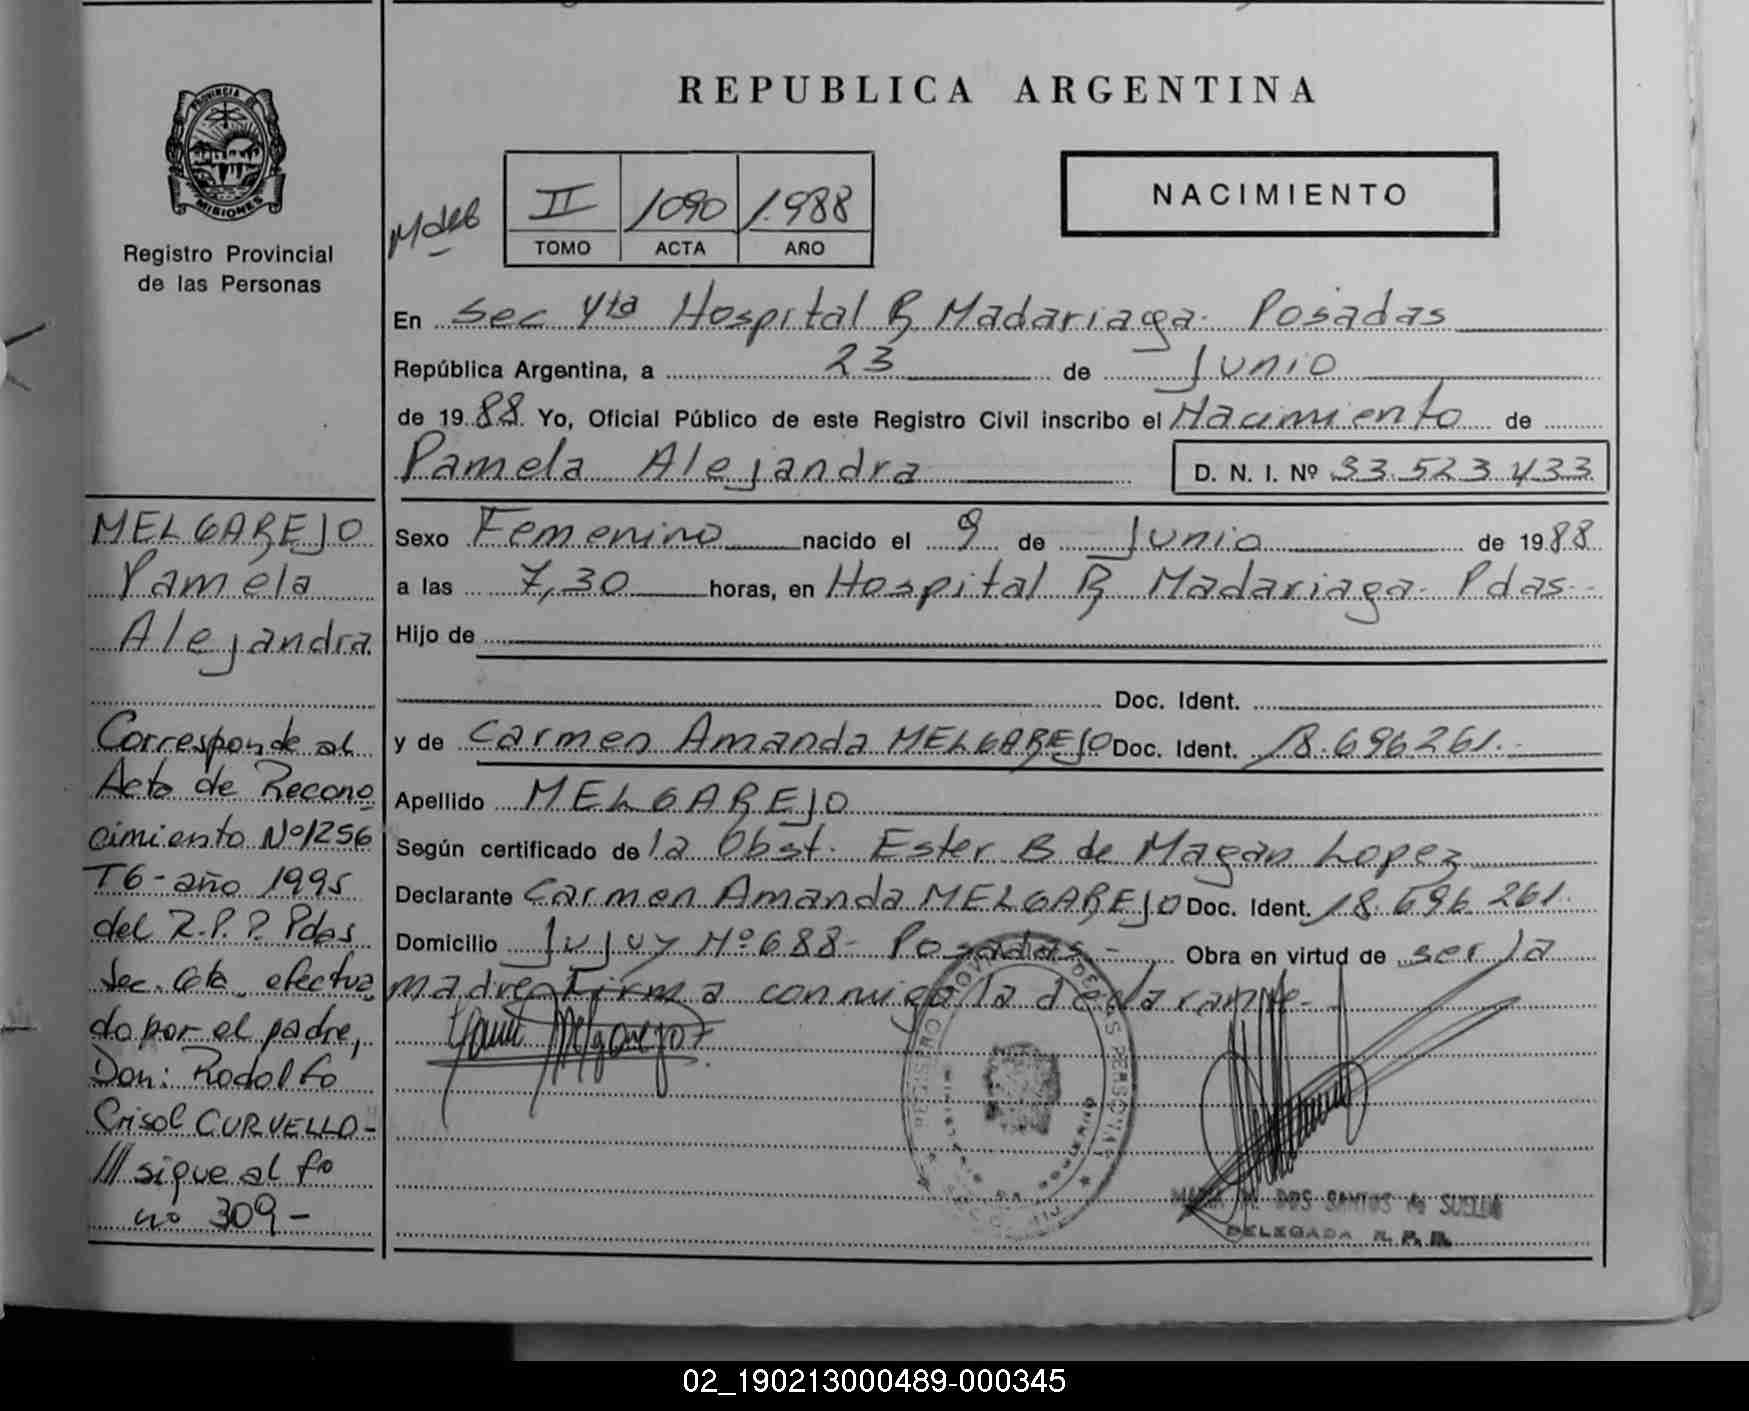 REPUBLICA ARGENTINA
PROVINCIA DE
MISIONES
Registro Provincial
de las Personas
II 1090 1988
TOMO ACTA AÑO
NACIMIENTO
En Sec 4ta Hospital R Madariaga. Posadas
República Argentina, a 23 de Junio
de 1988 Yo, Oficial Público de este Registro Civil inscribo el Nacimiento de
Pamela Alejandra D. N. I. Nº 33.523.433
Sexo Femenino nacido el 9 de Junio de 1988
a las 7,30 horas, en Hospital R Madariaga. Pdas.
Hijo de
Doc. Ident.
y de Carmen Amanda MELGAREJO Doc. Ident. 18.696261.-
Apellido MELGAREJO
Según certificado de la Obst. Ester B de Magan Lopez
Declarante Carmen Amanda MELGAREJO Doc. Ident. 18.696.261.
Domicilio Jujuy Nº 688- Posadas.- Obra en virtud de ser la
madre. Firma conmigo la declarante.-
MELGAREJO
Pamela
Alejandra
Corresponde al
Acta de Recono
cimiento Nº 1256
T6- año 1995
del R.P.P. Pdas
Sec. 6ta. efectua
do por el padre,
Don: Rodolfo
Crisol CURVELLO-
/// sigue al fo
nº 309-
Melgarejo
MINISTERIO DE GOBIERNO
DOS SANTOS de SUELDO
DELEGADA R. P. P.
02_190213000489-000345